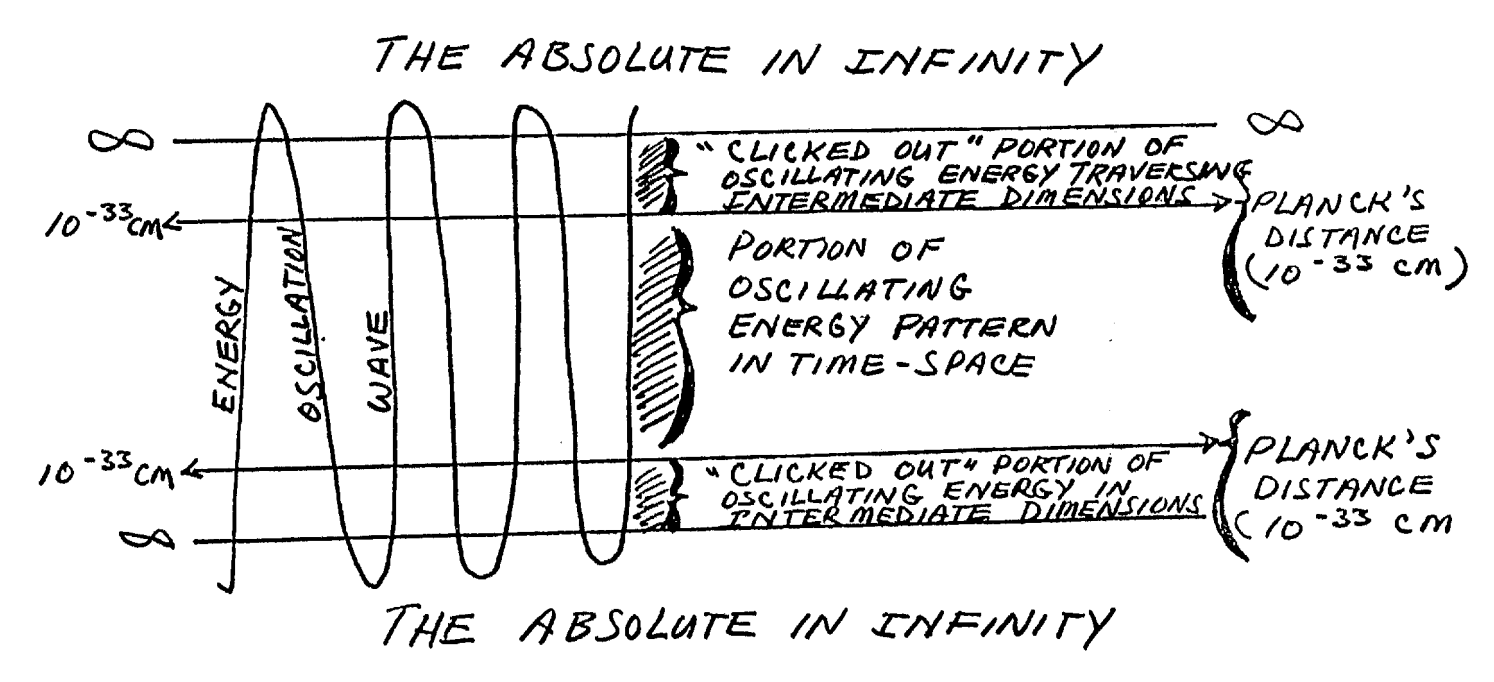 THE ABSOLUTE IN INFINITY
∞
∞
"CLICKED OUT" PORTION OF
OSCILLATING ENERGY TRAVERSING
INTERMEDIATE DIMENSIONS
10⁻³³cm
PLANCK'S
DISTANCE
(10⁻³³ cm)
PORTION OF
OSCILLATING
ENERGY PATTERN
IN TIME-SPACE
ENERGY
OSCILLATION
WAVE
10⁻³³cm
"CLICKED OUT" PORTION OF
OSCILLATING ENERGY IN
INTERMEDIATE DIMENSIONS
PLANCK'S
DISTANCE
(10⁻³³ cm
∞
THE ABSOLUTE IN INFINITY